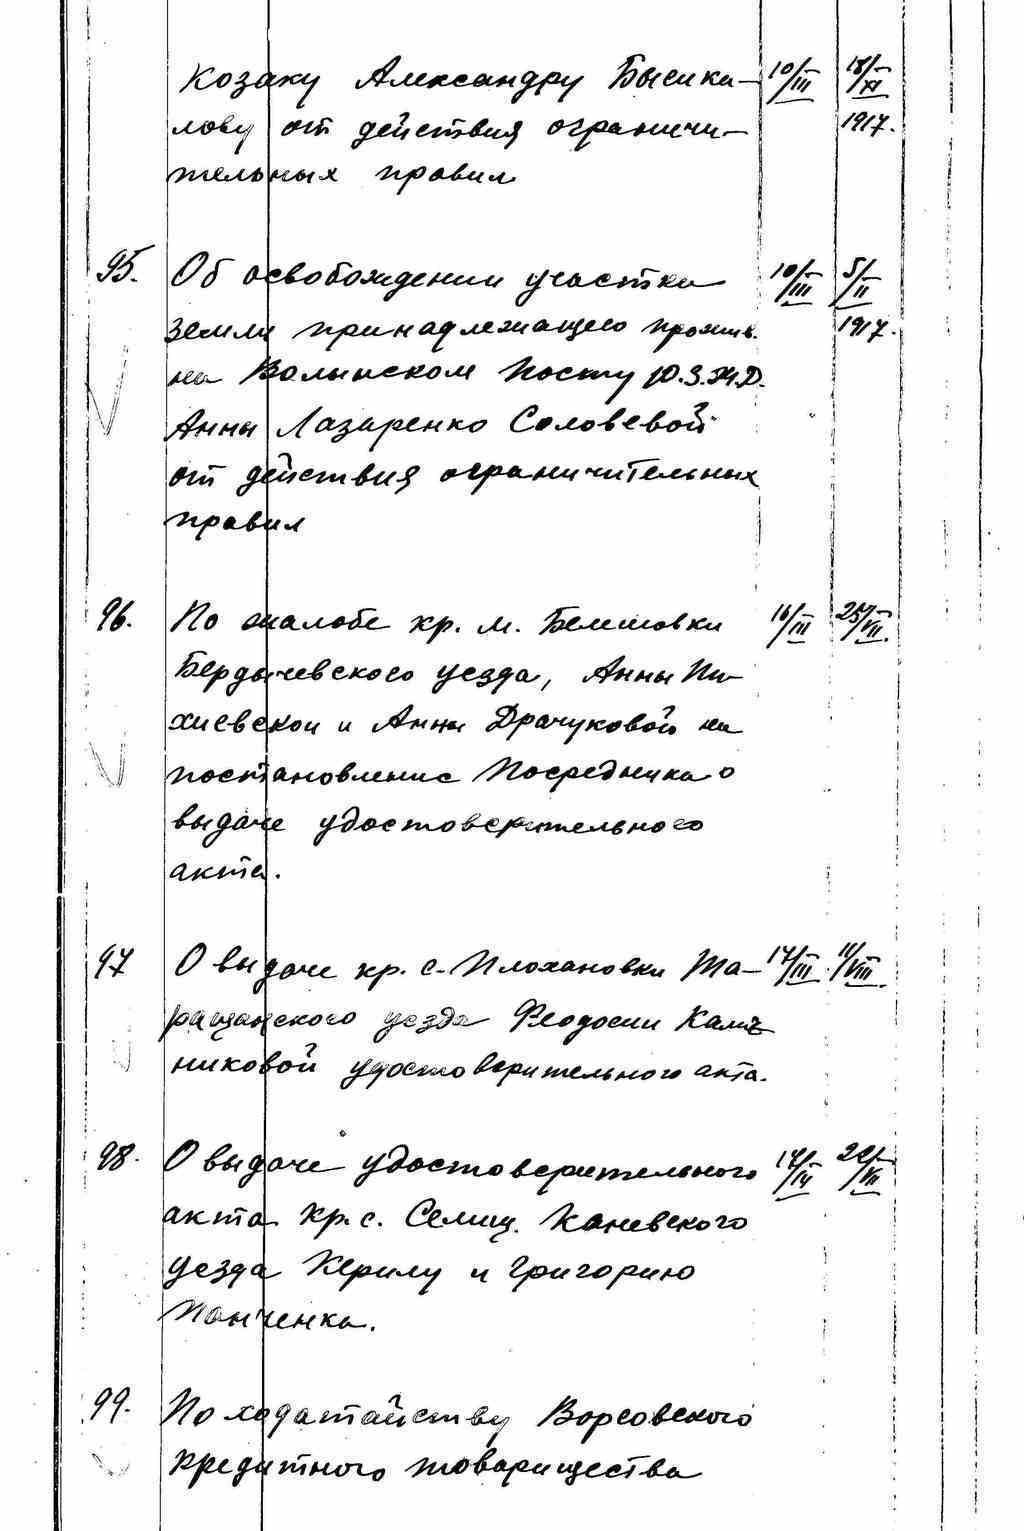 козаку Александру Бысика- 10/III 18/XI
лову от действия ограничи- 1917.
тельных правил
95. Об освобождении участка 10/III 5/II
земли принадлежащего прожив. 1917.
на Волынском Посту Ю.З.Ж.Д.
Анны Лазаренко Соловевой
от действия ограничительных
правил
96. По жалобе кр. м. Белиловки 16/III 25/VII.
Бердычевского уезда, Анны Пи-
хиевской и Анны Драчуковой на
постановление Посредника о
выдаче удостоверительного
акта.
97 О выдаче кр. с. Плохановки Та- 17/III 11/VIII.
ращанского уезда Феодосии
никовой удостоверительного акта.
98. О выдаче удостоверительного 14/IV /VII
акта кр. с. Семиц. Каневского
уезда Кирилу и Григорию
Панченка.
99. По ходатайству Ворсовского
кредитного товарищества